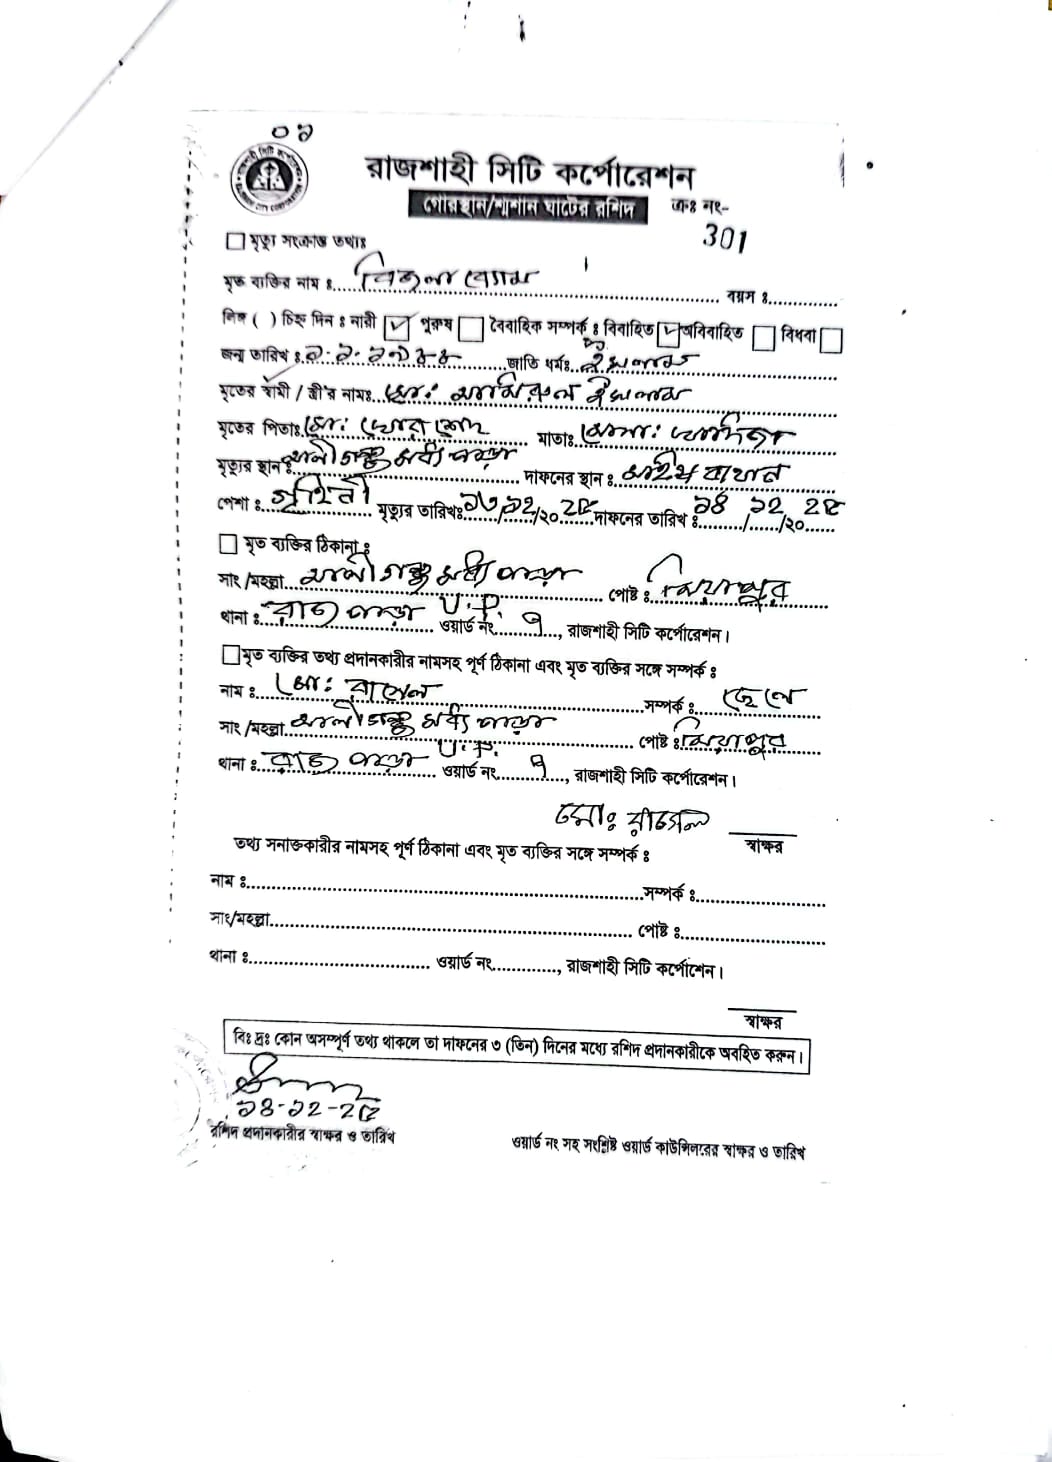 ০১
রাজশাহী সিটি কর্পোরেশন
গোরস্থান/শ্মশান ঘাটের রশিদ ক্রঃ নং-
301
মৃত্যু সংক্রান্ত তথ্যঃ
মৃত ব্যক্তির নাম ঃ বেগম বয়স ঃ
লিঙ্গ ( ) চিহ্ন দিন ঃ নারী ✓ পুরুষ বৈবাহিক সম্পর্ক ঃ বিবাহিত ✓ অবিবাহিত বিধবা
জন্ম তারিখ ঃ ১-১-১৯৪৪ জাতি ধর্মঃ ইসলাম
মৃতের স্বামী / স্ত্রী'র নামঃ মো: ইসলাম
মৃতের পিতাঃ মো: মাতাঃ মোসা:
মৃত্যুর স্থান ঃ আলীগঞ্জ মধ্য পাড়া দাফনের স্থান ঃ
পেশা ঃ গৃহিনী মৃত্যুর তারিখঃ ১৩/১২/২০ ২৫ দাফনের তারিখ ঃ ১৪/১২/২০ ২৫
মৃত ব্যক্তির ঠিকানা ঃ
সাং /মহল্লা আলীগঞ্জ মধ্য পাড়া পোষ্ট ঃ
থানা ঃ রাজ পাড়া U.P. ওয়ার্ড নং ৭, রাজশাহী সিটি কর্পোরেশন।
মৃত ব্যক্তির তথ্য প্রদানকারীর নামসহ পূর্ণ ঠিকানা এবং মৃত ব্যক্তির সঙ্গে সম্পর্ক ঃ
নাম ঃ মো: রাসেল সম্পর্ক ঃ ছেলে
সাং /মহল্লা আলীগঞ্জ মধ্য পাড়া পোষ্ট ঃ
থানা ঃ রাজ পাড়া U.P. ওয়ার্ড নং ৭, রাজশাহী সিটি কর্পোরেশন।
মোঃ রাসেল
স্বাক্ষর
তথ্য সনাক্তকারীর নামসহ পূর্ণ ঠিকানা এবং মৃত ব্যক্তির সঙ্গে সম্পর্ক ঃ
নাম ঃ সম্পর্ক ঃ
সাং/মহল্লা পোষ্ট ঃ
থানা ঃ ওয়ার্ড নং, রাজশাহী সিটি কর্পোশেন।
স্বাক্ষর
বিঃ দ্রঃ কোন অসম্পূর্ণ তথ্য থাকলে তা দাফনের ৩ (তিন) দিনের মধ্যে রশিদ প্রদানকারীকে অবহিত করুন।
১৪-১২-২৫
রশিদ প্রদানকারীর স্বাক্ষর ও তারিখ
ওয়ার্ড নং সহ সংশ্লিষ্ট ওয়ার্ড কাউন্সিলরের স্বাক্ষর ও তারিখ